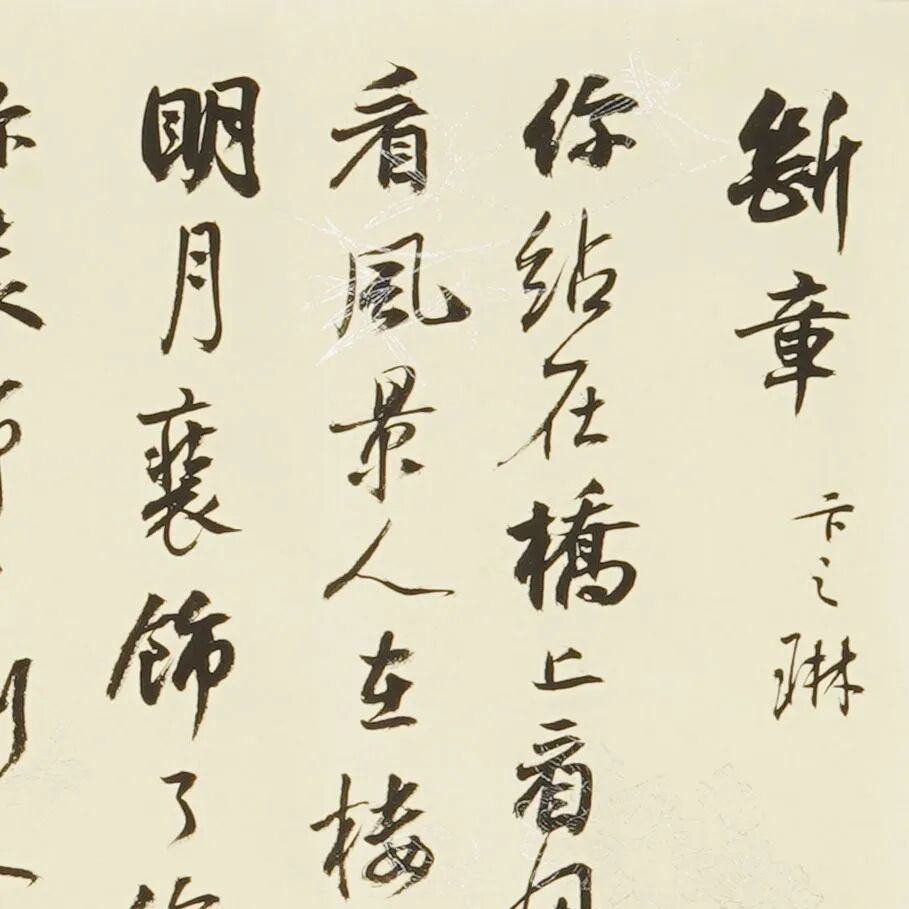 斷章
卞之琳
你站在橋上看
看風景人在樓
明月裝飾了